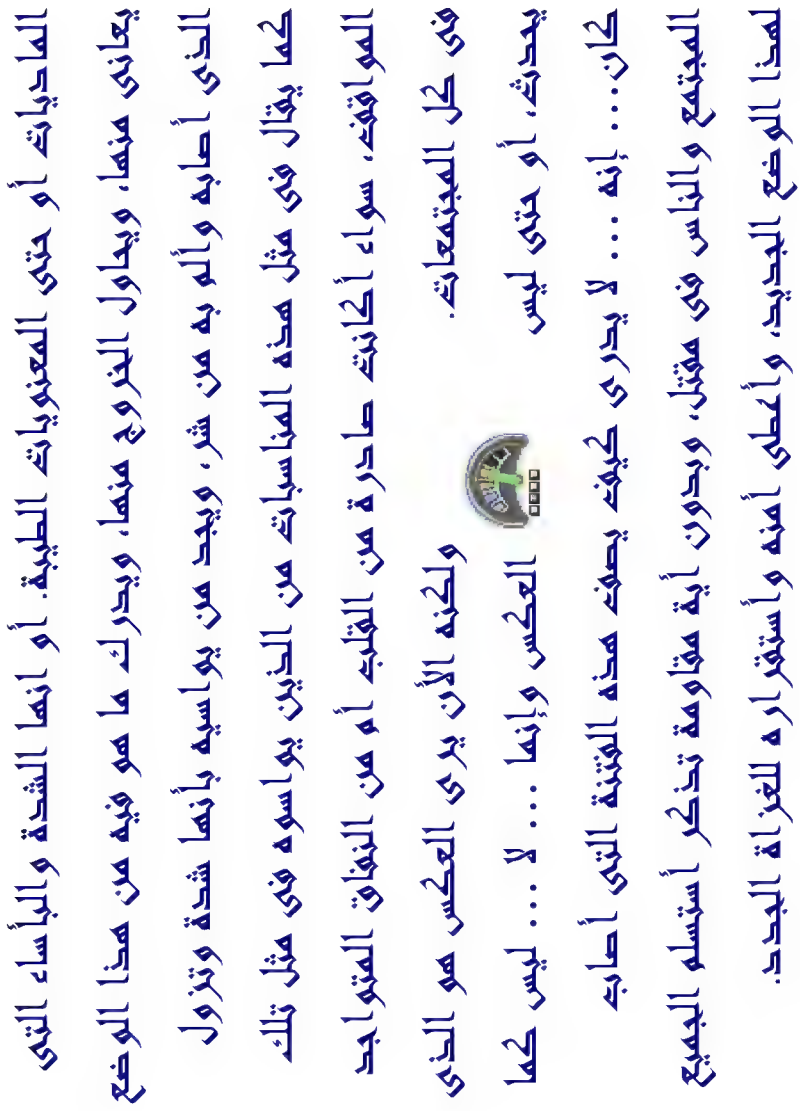 الامدادات أو حتى المعنويات الطيبة. أو انها الشدة والبأساء التى
تعانى منها، وتحاول الخروج منها، وتدرك ما هو فيه من هذا الوضع
الذى أصابه وألم به من شر، وتجد من يواسيه إنها شدة وتزول
كما يقال فى مثل هذه المناسبات من الذين يواسوه فى مثل تلك
المواقف، سواء أكانت صادرة من القلب أو من النفاق المتواجد
فى كل المجتمعات. ولكنه الأن يرى العكس هو الذى
يحدث، أو حتى ليس العكس وإنما ... لا ... ليس كما
كان ... إنه ... لا يدرى كيف يصف هذه الفتنة التى أصابت
المجتمع والناس فى مقتل، وبدون أية مقاومة تذكر أستسلم الجميع
لهذا الوضع الجديد، وأمنه وأستقراره الغزاة الجدد.